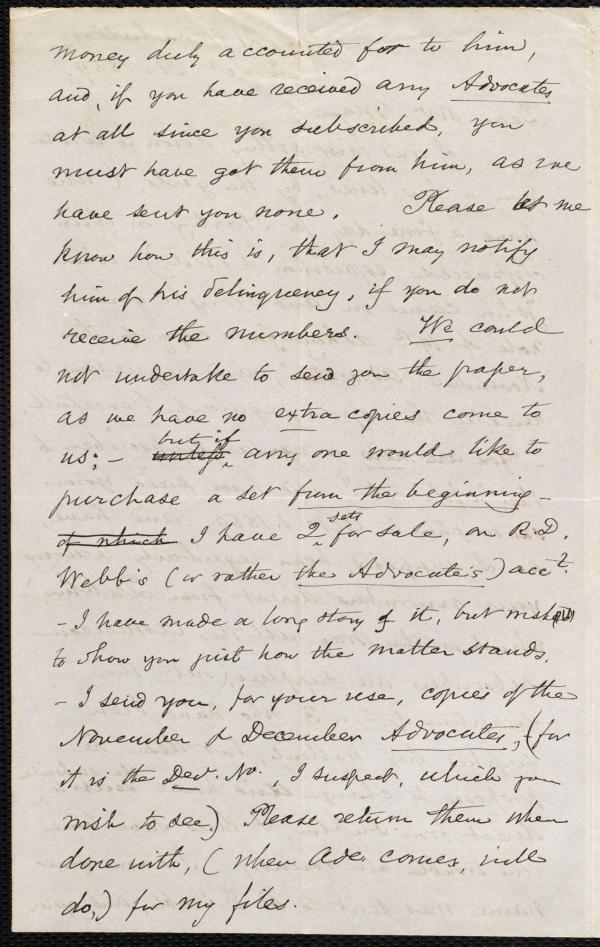 money duly accounted for to him,
and, if you have received any Advocates
at all since you subscribed, you
must have got them from him, as we
have sent you none. Please let me
know how this is, that I may notify
him of his delinquency, if you do not
receive the numbers. We could
not undertake to send you the paper,
as we have no extra copies come to
us; – unless but if any one would like to
purchase a set from the beginning –
of which I have 2 sets for sale, on R.D.
Webb's (or rather the Advocate's) acct.
– I have made a long story of it, but wished
to show you just how the matter stands.
– I send you, for your use, copies of the
November & December Advocates, (for
it is the Dec. No., I suspect, which you
wish to see.) Please return them when
done with, (when Adv. comes, will
do,) for my files.